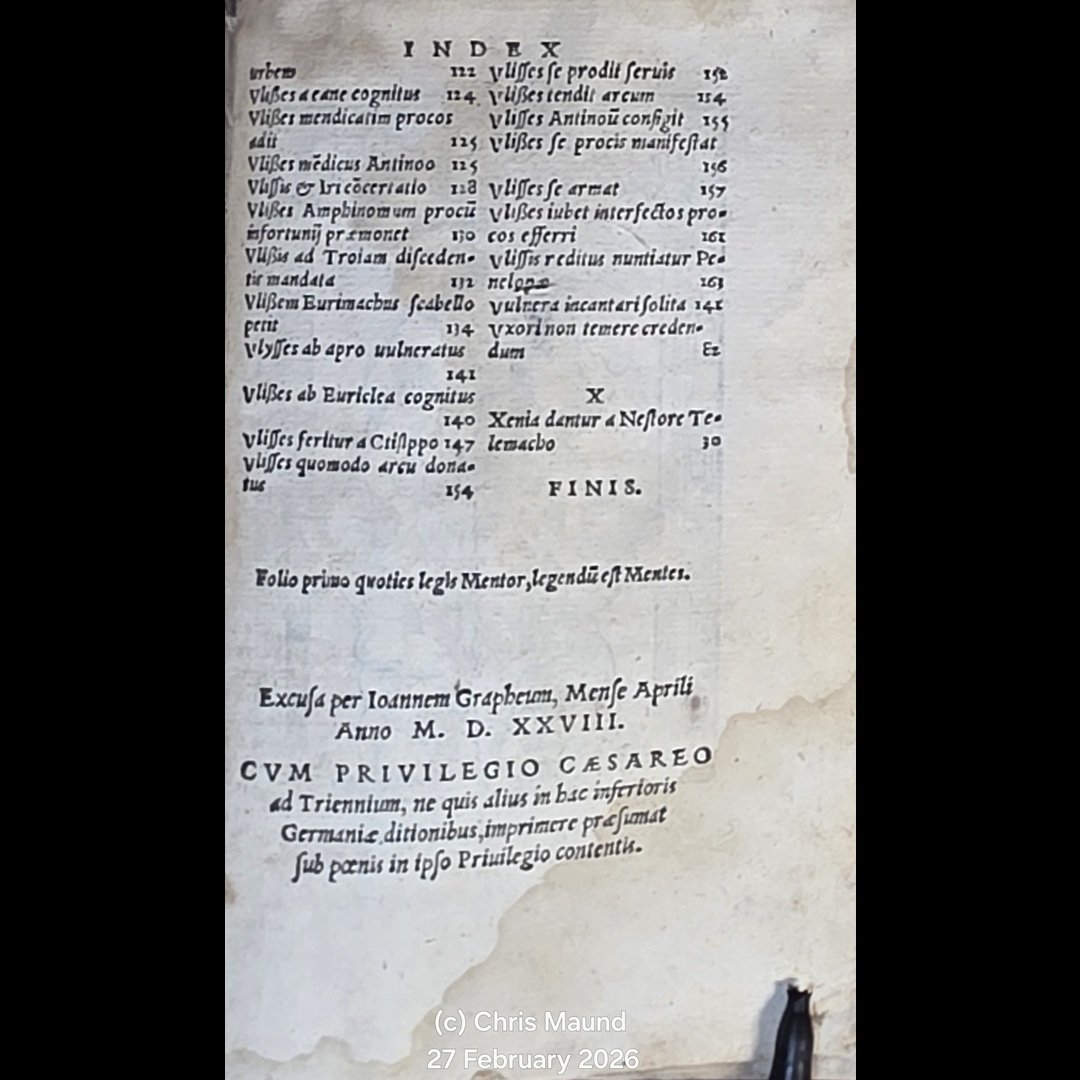 INDEX
urbem 122
Vlißes a cane cognitus 124
Vlißes mendicatim procos
adit 125
Vlißes mēdicus Antinoo 125
Vlissis & Iri cōcertatio 128
Vlißes Amphinomum procū
infortunij præmonet 130
Vlißis ad Troiam disceden-
tis mandata 132
Vlißem Eurimachus scabello
petit 134
Vlysses ab apro uulneratus
141
Vlißes ab Euriclea cognitus
140
Vlisses feritur a Ctisippo 147
Vlisses quomodo arcu dona-
tus 154
Vlisses se prodit seruis 152
Vlißes tendit arcum 154
Vlisses Antinoū configit 155
Vlißes se procis manifestat
156
Vlisses se armat 157
Vlißes iubet interfectos pro-
cos efferri 161
Vlissis reditus nuntiatur Pe-
nelopæ 163
Vulnera incantari solita 141
Vxori non temere creden-
dum 82
X
Xenia dantur a Nestore Te-
lemacho 30
FINIS.
Folio primo quoties legis Mentor, legendū est Mentes.
Excusa per Ioannem Grapheum, Mense Aprili
Anno M. D. XXVIII.
CVM PRIVILEGIO CÆSAREO
ad Triennium, ne quis alius in hac inferioris
Germaniæ ditionibus, imprimere præsumat
sub pœnis in ipso Priuilegio contentis.
(c) Chris Maund
27 February 2026